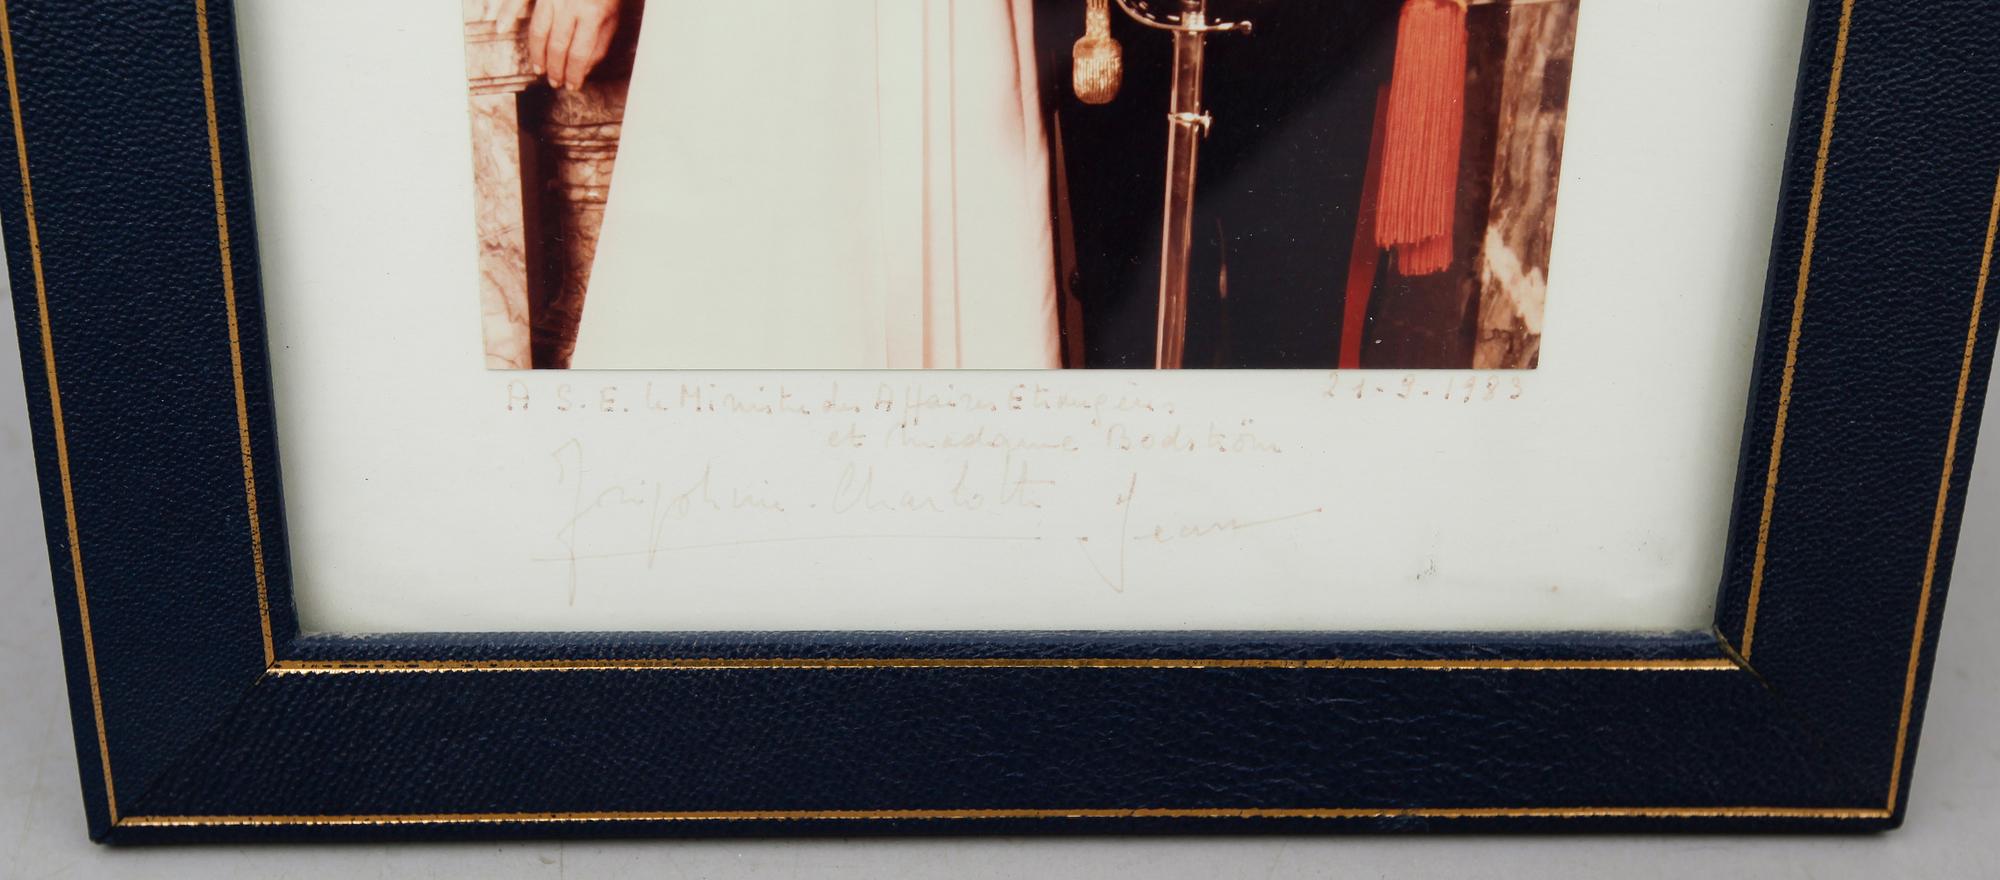 A S.E. le Ministre des Affaires Etrangères 21-9-1983
et Madame Bodström
Joséphine-Charlotte Jean